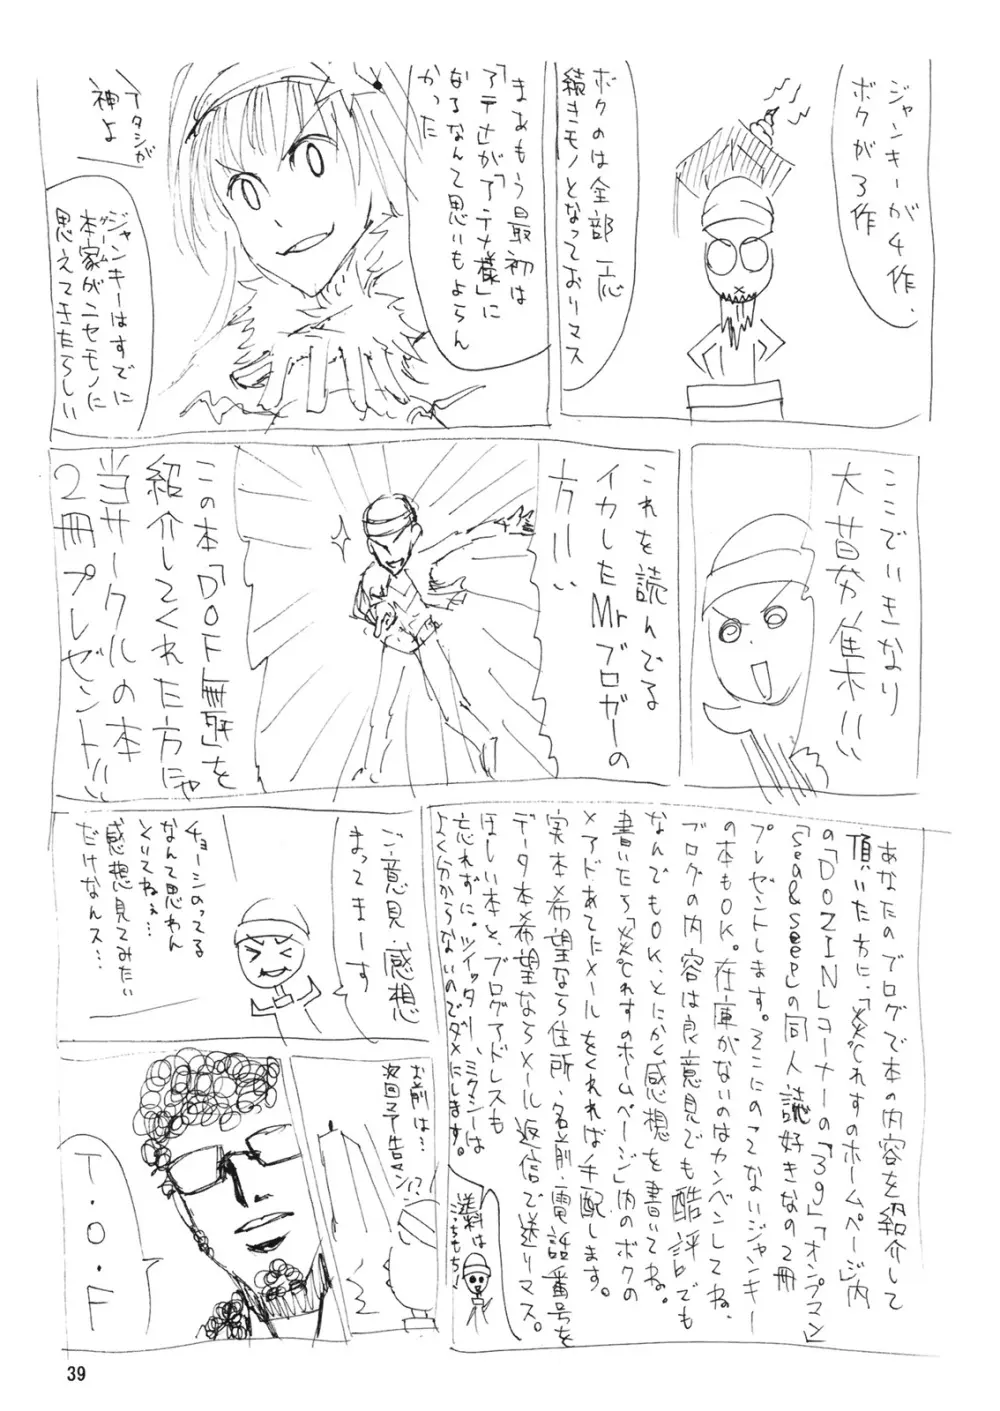 ジャンキーが4作、
ボクが3作
ボクのは全部一応
続きモノとなっておりマス
まあもう最初は
「アテナ」が「アテナ様」に
なるなんて思いもよらん
かった
アタシが
神よ
ジャンキーはすでに
本家がニセモノに
ゲーム
思えてきたらしい
ここでいきなり
大募集!!
これを読んでる
イカしたMrブロガーの
方!!
この本「DOF無限」を
紹介してくれた方にゃ
当サークルの本
2冊プレゼント!!
あなたのブログで本の内容を紹介して
頂いた方に、「炎じれすのホームページ」内
の「DOZIN」コーナーの「39」「オンプマン」
「Sea&Seep」の同人誌好きなの2冊
プレゼントします。そこにのってないジャンキー
の本もOK。在庫がないのはカンベンしてね。
ブログの内容は良意見でも酷評でも
なんでもOK、とにかく感想を書いてね。
書いたら「炎じれすのホームページ」内のボクの
メアドあてにメールをくれれば手配します。
実本希望なら住所・名前・電話番号を
データ本希望ならメール返信で送りマス。
ほしい本と、ブログアドレスも
忘れずに。ツイッター、ミクシーは
よく分からないのでダメにします。
送料は
こっちもち!
ご意見・感想
まってまーす
チョーシのってる
なんて思わん
といてねぇ…
感想見てみたい
だけなんス…
お前は…
次回予告マン!?
T・O・F
39